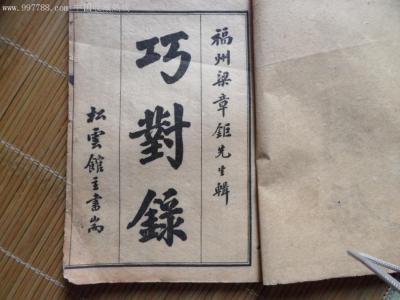 福州梁章鉅先生輯
巧對錄
松雲館主書耑
www.997788.com